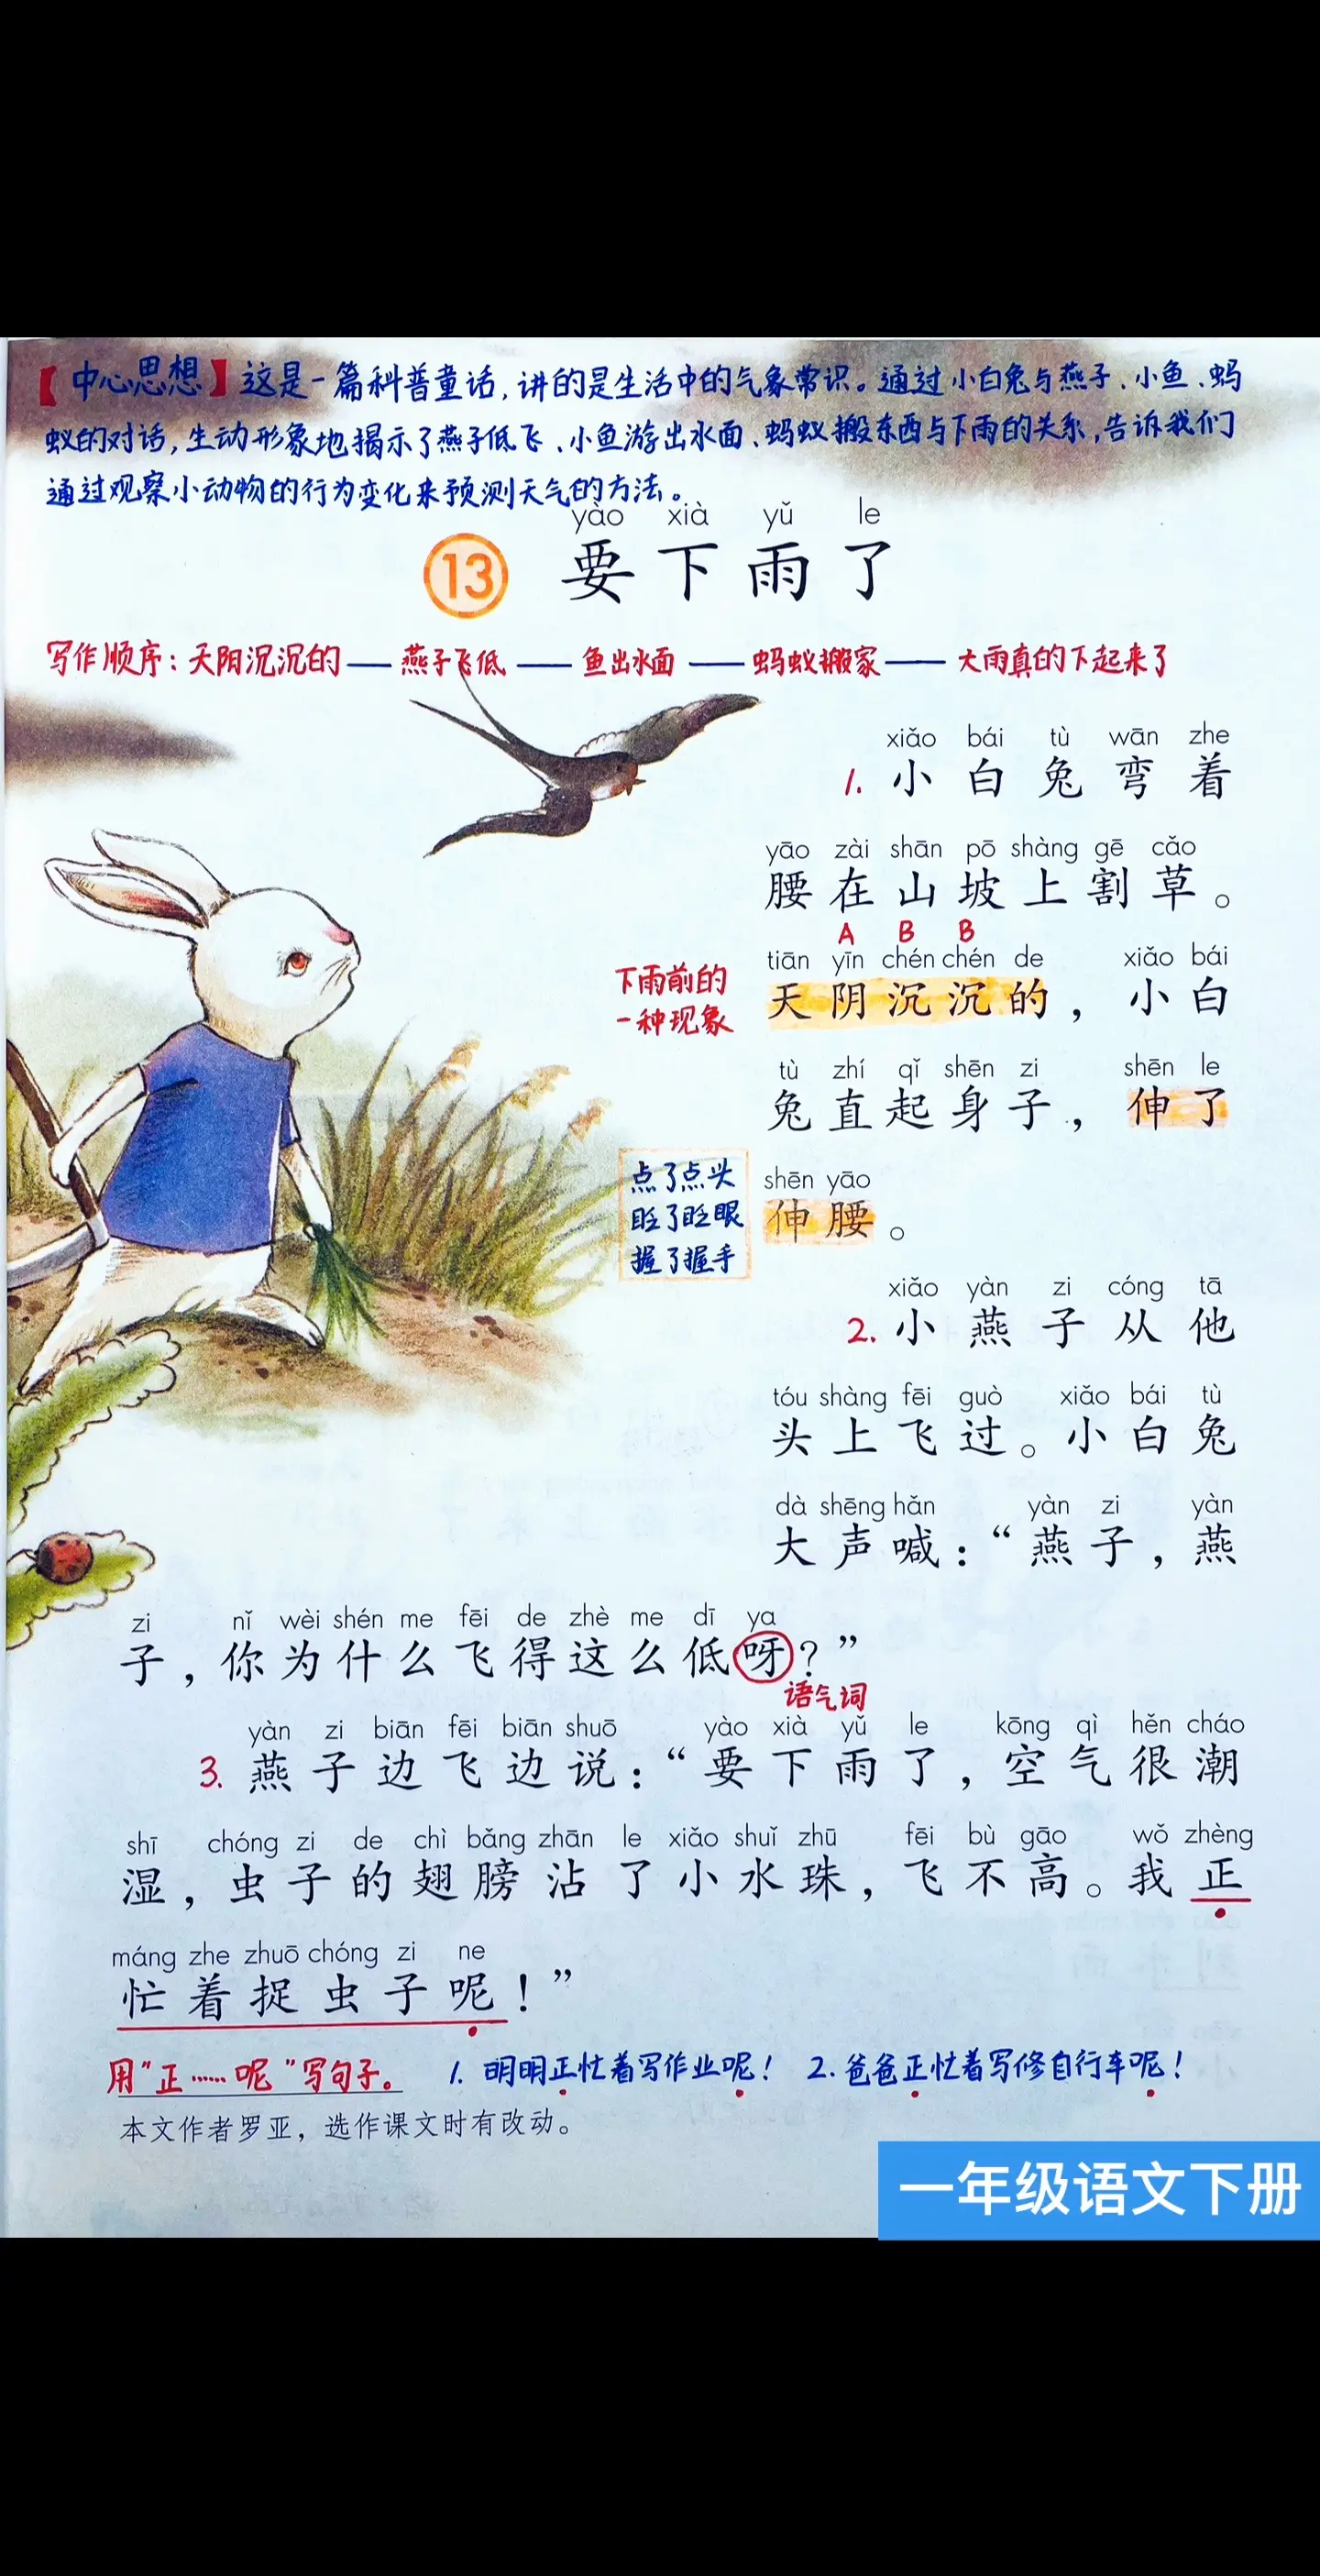 【中心思想】这是一篇科普童话,讲的是生活中的气象常识。通过小白兔与燕子、小鱼、蚂
蚁的对话,生动形象地揭示了燕子低飞、小鱼游出水面、蚂蚁搬东西与下雨的关系,告诉我们
通过观察小动物的行为变化来预测天气的方法。
yào xià yǔ le
13 要下雨了
写作顺序：天阴沉沉的——燕子飞低——鱼出水面——蚂蚁搬家——大雨真的下起来了
xiǎo bái tù wān zhe
1. 小白兔弯着
yāo zài shān pō shàng gē cǎo
腰在山坡上割草。
A B B
tiān yīn chén chén de xiǎo bái
天阴沉沉的，小白
下雨前的
一种现象
tù zhí qǐ shēn zi shēn le
兔直起身子，伸了
shēn yāo
伸腰。
点了点头
眨了眨眼
握了握手
xiǎo yàn zi cóng tā
2. 小燕子从他
tóu shàng fēi guò xiǎo bái tù
头上飞过。小白兔
dà shēng hǎn yàn zi yàn
大声喊：“燕子，燕
zi nǐ wèi shén me fēi de zhè me dī ya
子，你为什么飞得这么低呀？”
语气词
yàn zi biān fēi biān shuō yào xià yǔ le kōng qì hěn cháo
3. 燕子边飞边说：“要下雨了，空气很潮
shī chóng zi de chì bǎng zhān le xiǎo shuǐ zhū fēi bù gāo wǒ zhèng
湿，虫子的翅膀沾了小水珠，飞不高。我正
máng zhe zhuō chóng zi ne
忙着捉虫子呢！”
用“正……呢”写句子。 1. 明明正忙着写作业呢！ 2. 爸爸正忙着写修自行车呢！
本文作者罗亚，选作课文时有改动。
一年级语文下册